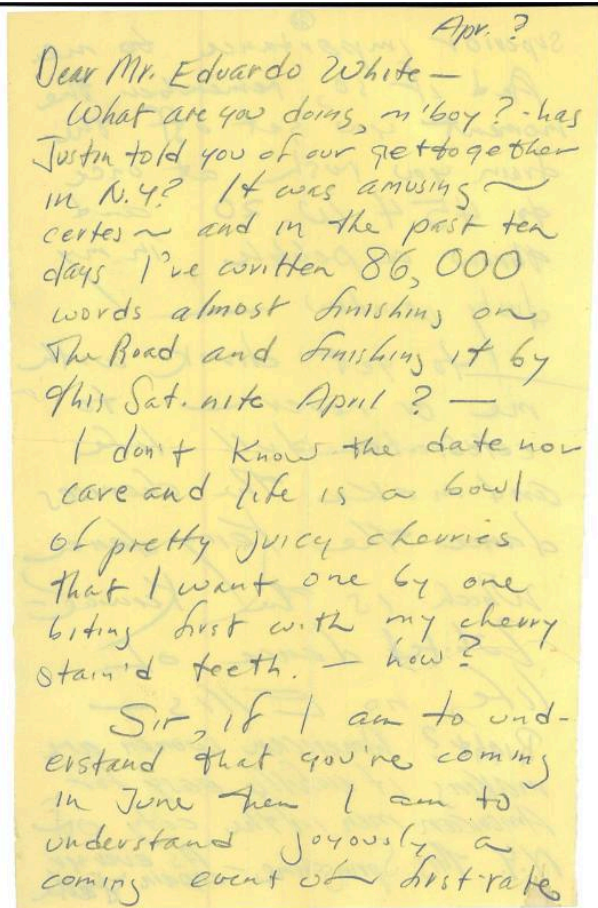 Apr. ?
Dear Mr. Eduardo White —
What are you doing, m'boy? - has
Justin told you of our gettogether
in N.Y? It was amusing ~
certes ~ and in the past ten
days I've written 86,000
words almost finishing on
The Road and finishing it by
this Sat. nite April ? —
I don't know the date nor
care and life is a bowl
of pretty juicy cherries
that I want one by one
biting first with my cherry
stain'd teeth. — how?
Sir, if I am to und-
erstand that you're coming
in June then I am to
understand joyously a
coming event of first-rate